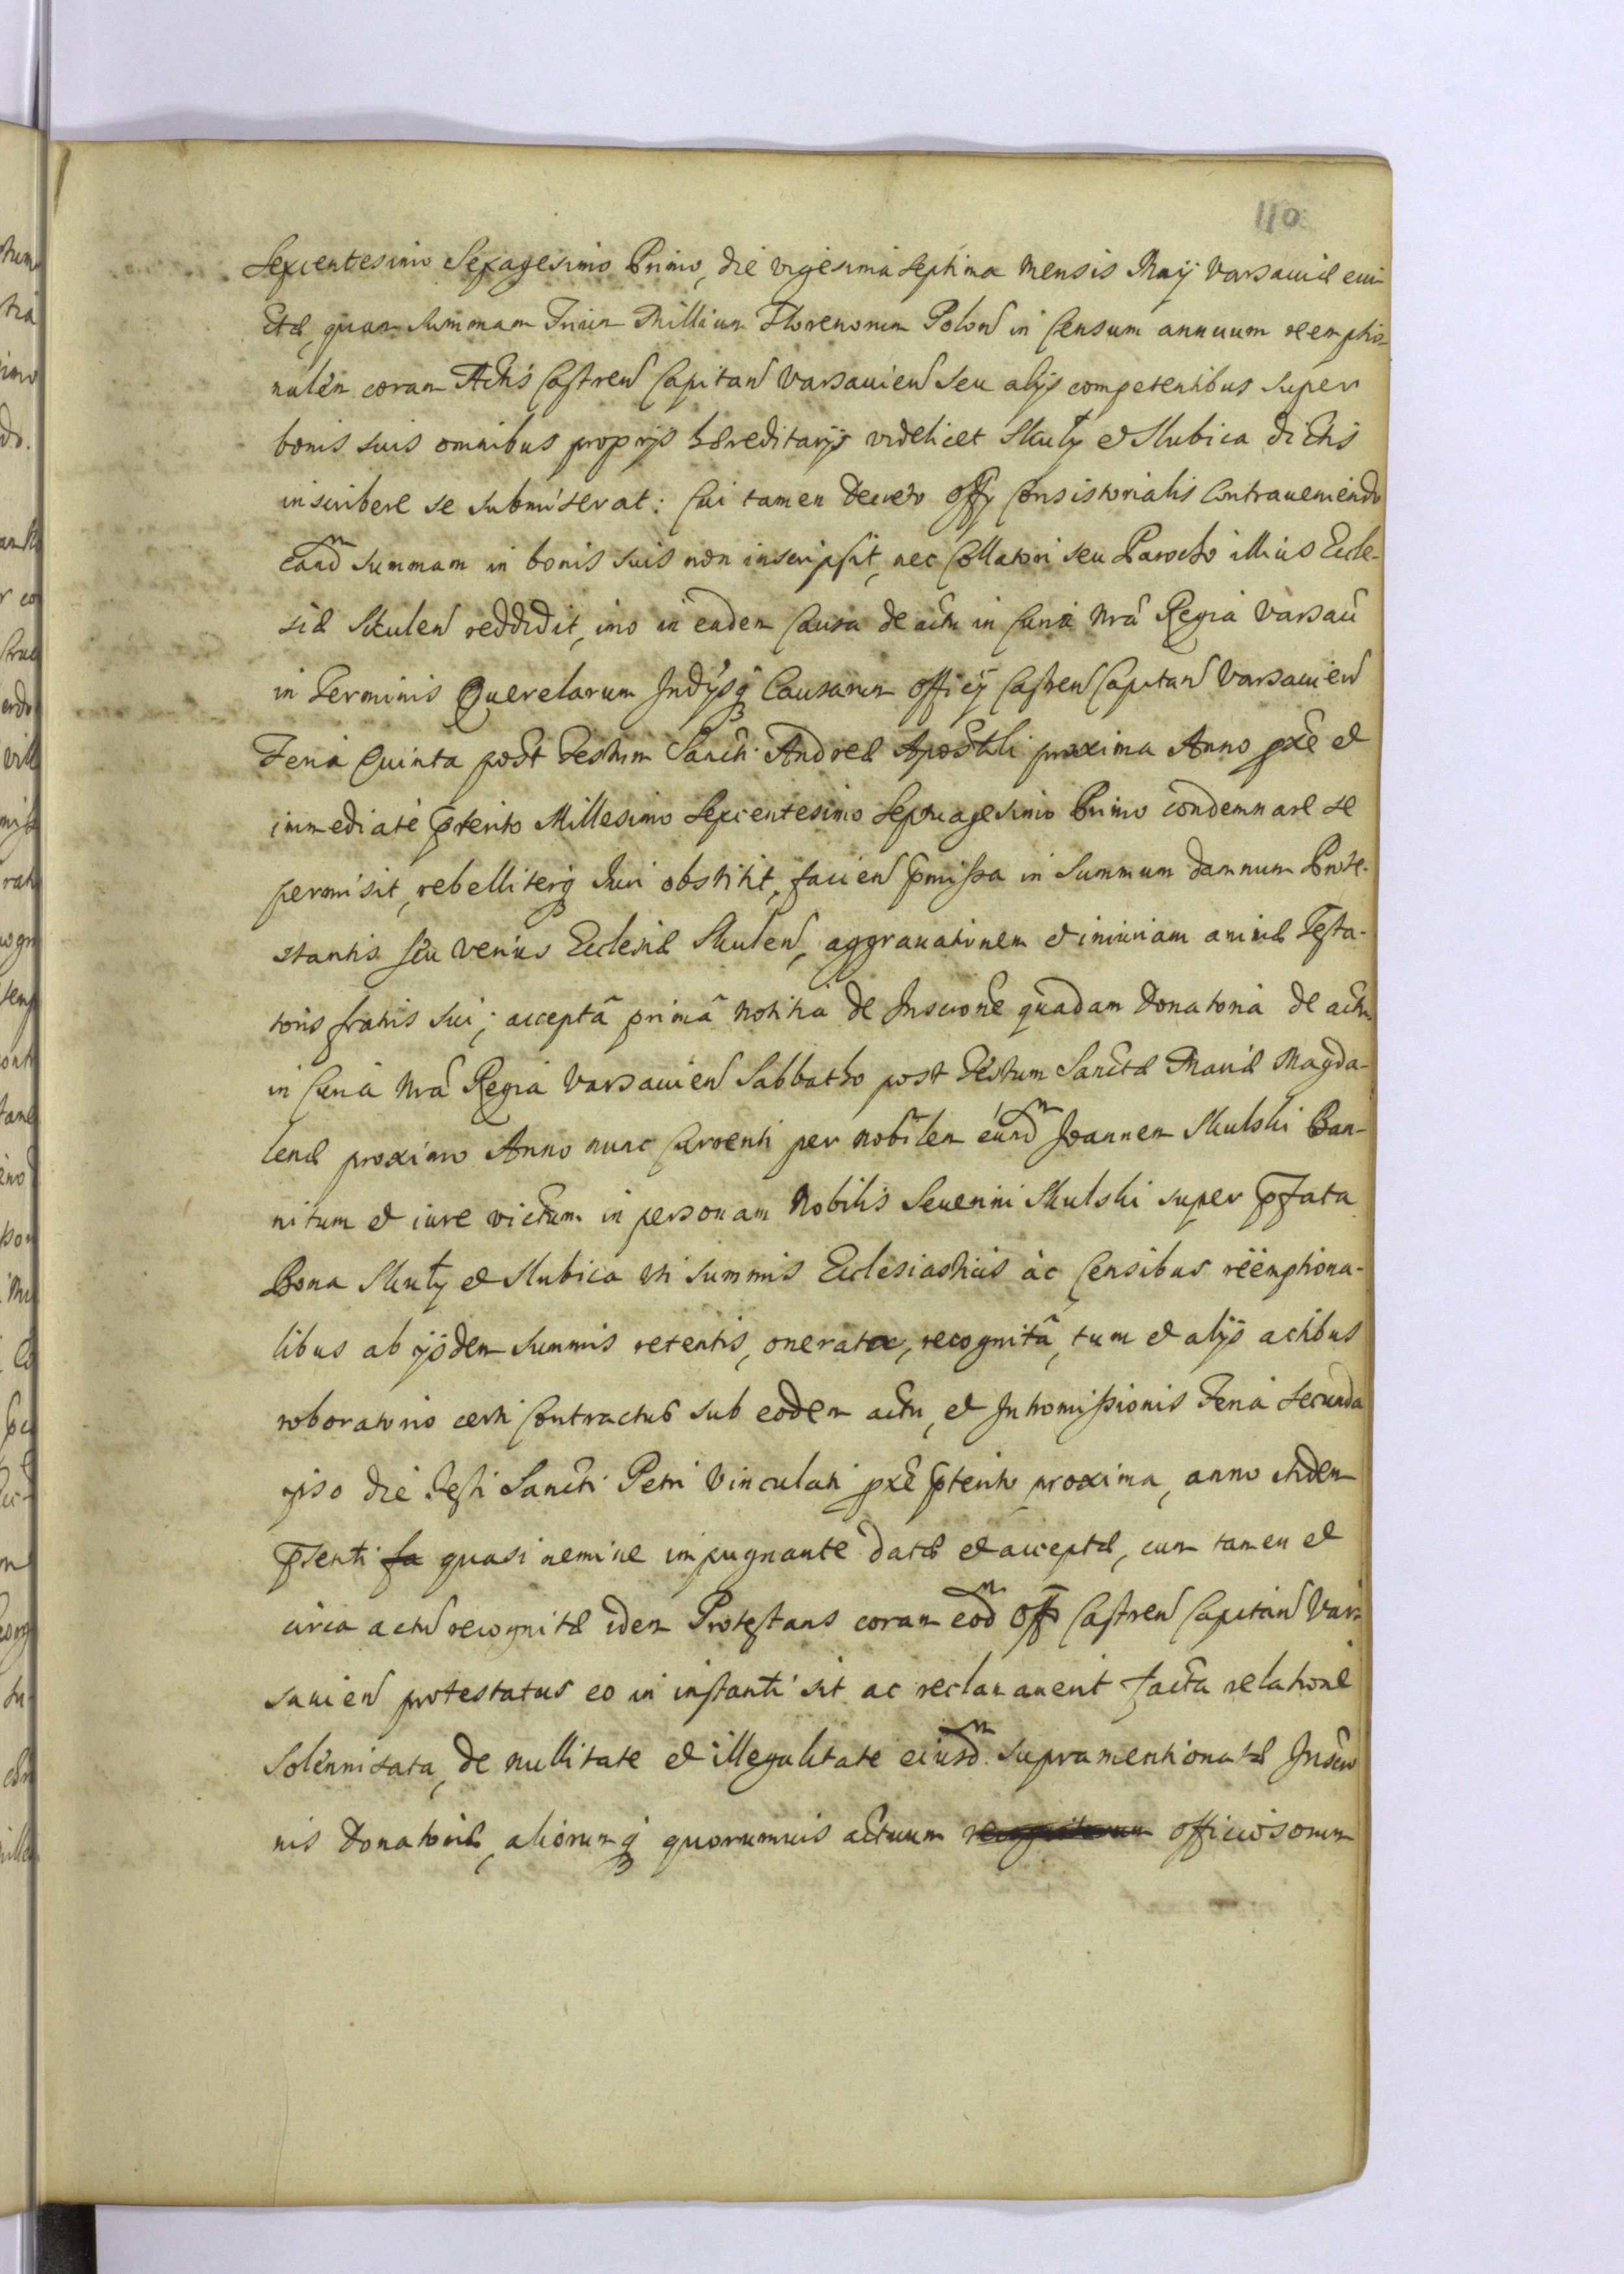 110
Sexcentesimo Sexagesimo Primo, die vigesima septima Mensis Maij Varsauiæ eui-
ctæ, quam summam Trium Millium Florenorum Polon in Censum annuum reemptio-
nalem coram Actis Castren Capitan Varsauien seu alijs competentibus super
bonis suis omnibus proprijs hæreditarijs videlicet Skuły et Słubica dictis
inscribere se submiserat: Cui tamen decreto Offi Consistorialis Contraueniendo
eand summam in bonis suis non inscripsit, nec Collatori seu Parocho illius Eccle-
siæ Skulen reddidit, imo in eadem Causa de actu in Curia Nrã Regia Varsau
in Terminis Querelarum Indysq Causarum Officij Castren Capitan Varsauien
Feria Quinta post Festum Sancti Andreæ Apostoli proxima Anno pxe et
immediatè pterito Millesimo Sexcentesimo Septuagesimo Primo condemnare se
permisit, rebelliterq Iuri obstitit, facien pmissa in summum damnum Prote-
stantis seu verius Ecclesiæ Skulen, aggrauationem et iniuriam animæ Testa-
toris fratris sui; acceptâ primâ notitia de Inscrone quadam Donatoria de actu
in Curia Nrã Regia Varsauien Sabbatho post Festum Sanctæ Mariæ Magda-
lenæ proximo Anno nunc Currenti per nobilem eund Joannem Skulski Ban-
nitum et iure victum in personam Nobilis Seuerini Skulski super pfata
Bona Skuły et Słubica uti summis Ecclesiasticis ac Censibus rëemptiona-
libus ab ijsdem summis retentis, onerata, recognitâ, tum et alijs actibus
roboratorio certi Contractus sub eodem actu, et Intromissionis Feria secunda
ipso die Festi Sancti Petri Vinculati pxe pterito proxima, anno itidem
psenti fa quasi nemine impugnante datæ et acceptæ, cum tamen et
circa actu recognitæ idem Protestans coram eod Off Castren Capitan Var-
sauien protestatus eo in instanti sit ac reclamauerit facta relatione
solennisata, de nullitate et illegalitate eiusd supramentionatæ Inscrio
nis Donatoriæ, aliorumq quorumuis actuum officiosorum